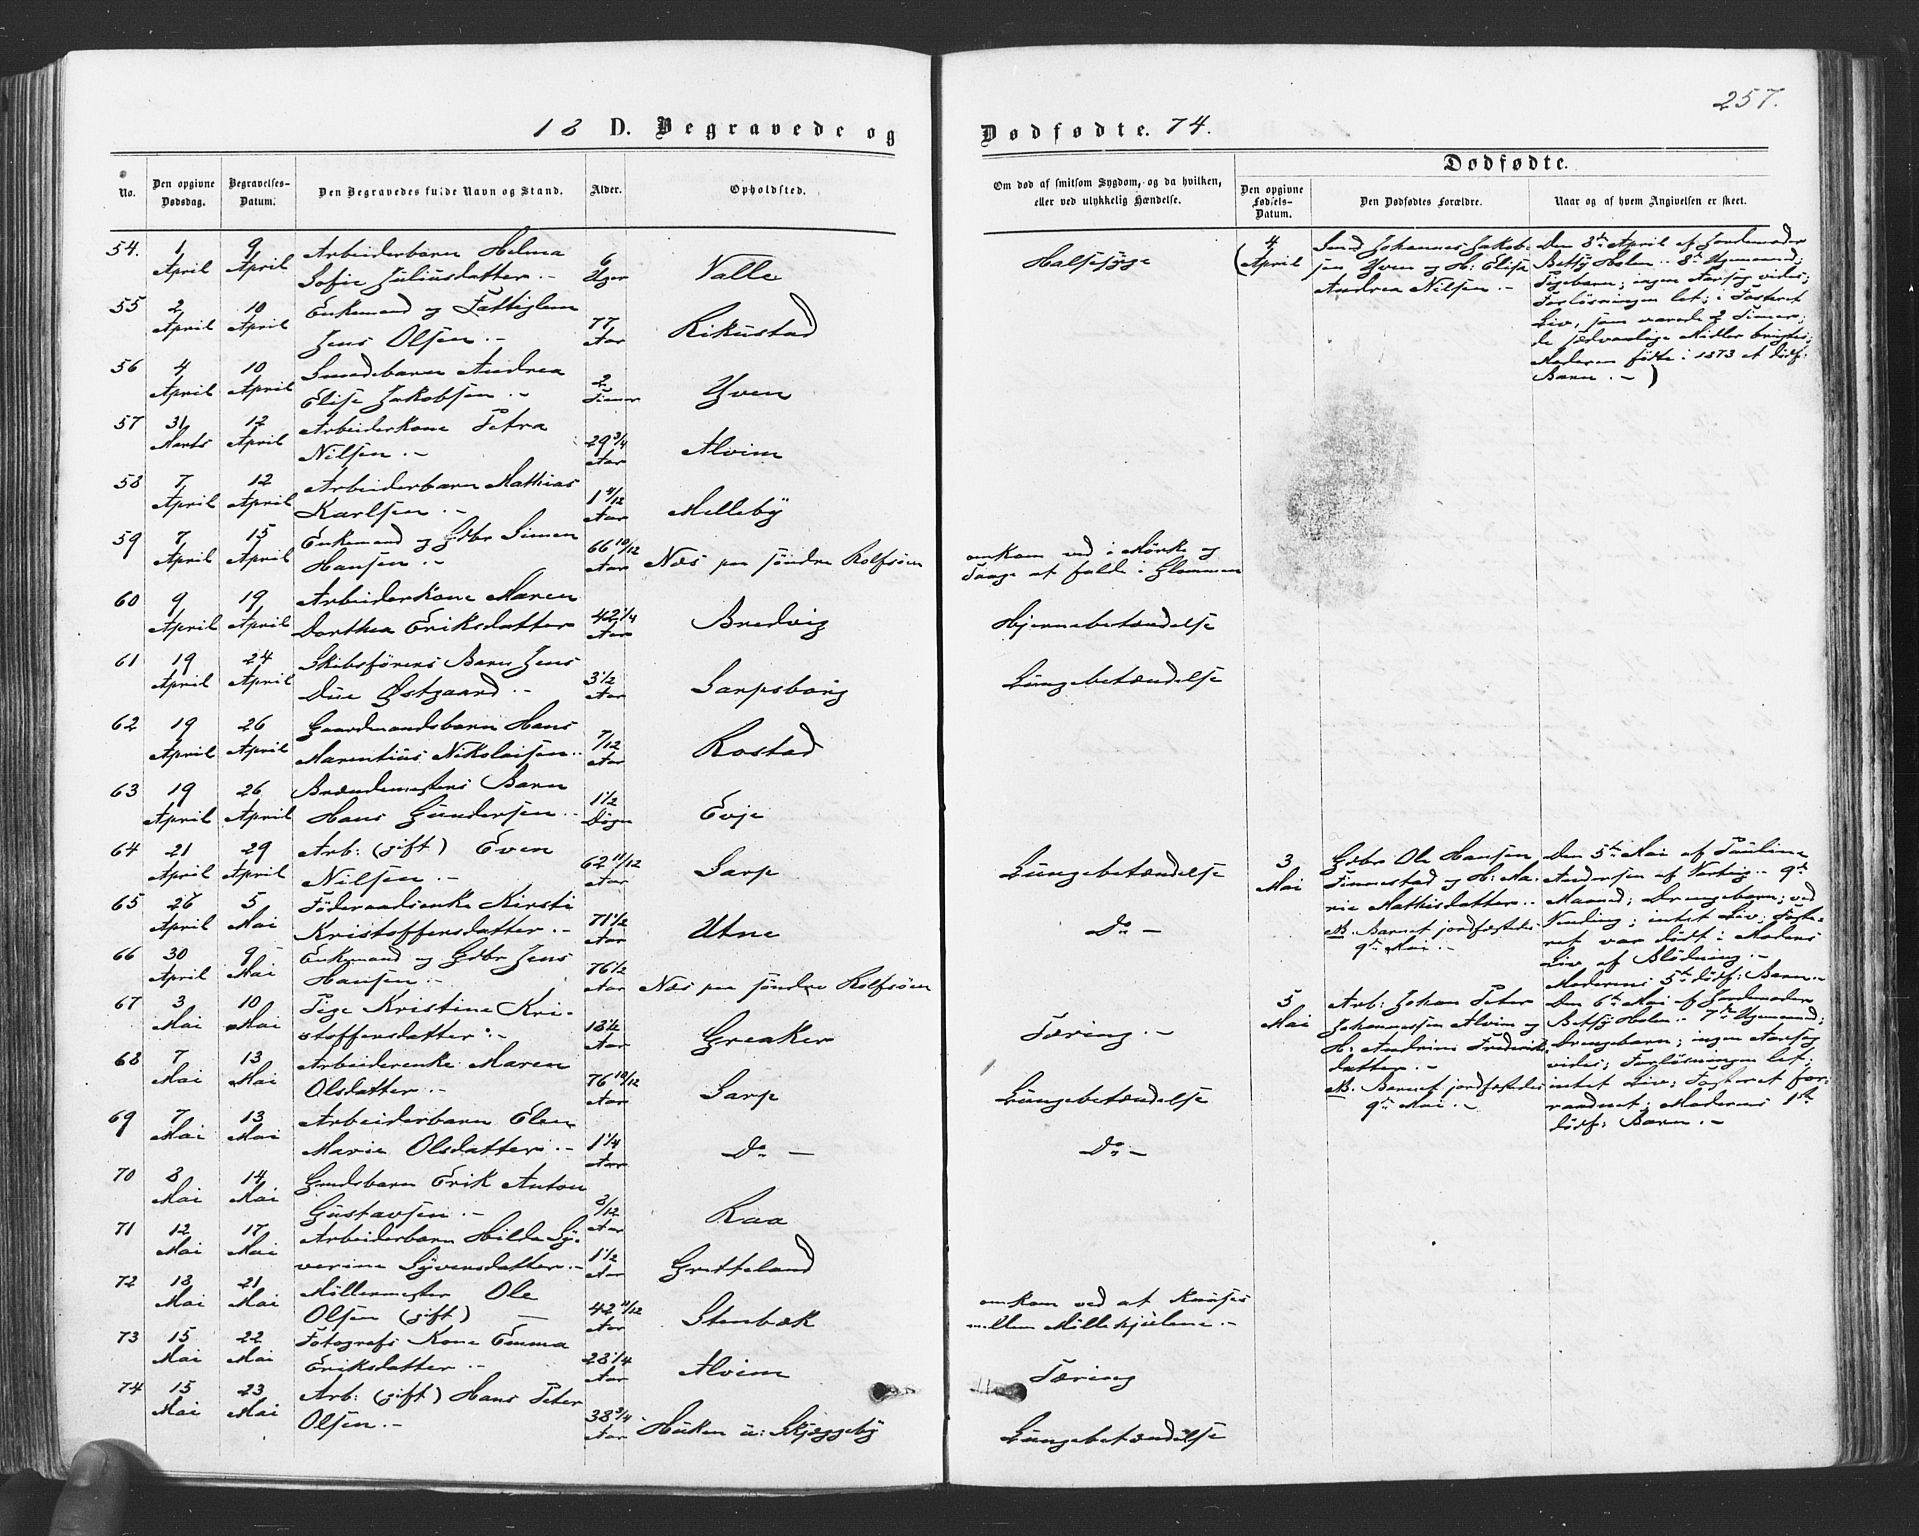 257.
18 D. Begravede og
Dødfødte. 74.
No.
Den opgivne Dødsdag.
Begravelses-Datum.
Den Begravedes fulde Navn og Stand.
Alder.
Opholdsted.
Om død af smitsom Sygdom, og da hvilken,
eller ved ulykkelig Hændelse.
Dødfødte.
Den opgivne Fødsels-Datum.
Den Dødfødtes Forældre.
Naar og af hvem Angivelsen er skeet.
54. 1 April 9 April Arbeiderbarn Helma
Sofie Juliusdatter.- 6 Uger Valle Halsesyge
55 2 April 10 April Enkemand og Fattiglem
Jens Olsen.- 77 Aar Rikustad
56 4 April 10 April Smedebarn Andrea
Elise Jakobsen.- 2 Timer Yven
57 31 Marts 12 April Arbeiderkone Petra
Nilsen.- 29 3/4 Aar Alvim
58 7 April 12 April Arbeiderbarn Mathias
Karlsen.- 1 4/12 Aar Melleby
59 7 April 15 April Enkemand og Gdbr Simen
Hansen.- 66 10/12 Aar Næs paa søndre Rolfsøen omkom ved i Mørke og
Taage at falde i Glommen
60 9 April 19 April Arbeiderkone Maren
Dorthea Eriksdatter 42 1/4 Aar Bredvig Hjernebetændelse
61 19 April 24 April Skibsførers Barn Jens
Due Østgaard.- 3 1/2 Aar Sarpsborg Lungebetændelse
62 19 April 26 April Gaardmandsbarn Hans
Marentius Nikolaisen. 7/12 Aar Rostad
63 19 April 26 April Brændemesters Barn
Hans Gundersen.- 1 1/2 Døgn Evje
64 21 April 29 April Arb: (gift) Even
Nilsen.- 62 11/12 Aar Sarp Lungebetændelse
65 26 April 5 Mai Föderaadsenke Kirsti
Kristoffersdatter.- 71 1/2 Aar Utne Do -
66 30 April 9 Mai Enkemand og Gdbr Jens
Hansen.- 76 1/2 Aar Næs paa søndre Rolfsøen
67 3 Mai 10 Mai Pige Kristine Kri-
stoffersdatter.- 18 1/2 Aar Greaker Tæring.-
68 7 Mai 13 Mai Arbeiderenke Maren
Olsdatter.- 76 10/12 Aar Sarp Lungebetændelse
69 7 Mai 13 Mai Arbeiderbarn Elen
Marie Olsdatter.- 1 1/4 Aar Do - Do -
70 8 Mai 14 Mai Gmdsbarn Erik Anton
Gustavsen.- 3/12 Aar Raa
71 12 Mai 17 Mai Arbeiderbarn Hilda Sy-
verine Syversdatter.- 1 1/2 Aar Gretteland
72 18 Mai 21 Mai Møllermester Ole
Olsen (gift) - 42 11/12 Aar Stenbæk omkom ved at knuses
mellem Møllehjulene.-
73 15 Mai 22 Mai Fotografs Kone Emma
Eriksdatter.- 28 1/4 Aar Alvim Tæring
74 15 Mai 23 Mai Arb: (gift) Hans Peter
Olsen.- 38 3/4 Aar Haken u: Skjeggeby Lungebetændelse
(4 April
Smed Johannes Jakob-
sen Yven og H: Elise
Andrea Nilsen.-
Den 8de April af Jordemoder
Betsy Holen.- 8de Ugemaaned;
Pigebarn; ingen Aarsag vides;
Forløsningen let; i Fosteret
Liv, som varede 2 Timer;
de sædvanlige Midler brugtes;
Moderen fødte i 1873 et dødf:
Barn.-)
3 Mai
Gdbr Ole Hansen
Finnestad og H: Ma-
rie Mathisdatter.-
NB. Barnet jordfæstedes
9de Mai.-
Den 5te Mai af Pauline
Andersen af Vestvig.- 9de
Maaned; Drengebarn; ved
Vending; intet Liv; Foste-
ret var dødt i Moders
Liv af Blødning.-
Moderens 5te dødf: Barn.-
5 Mai
Arb: Johan Peter
Johannessen Alvim og
H: Andrine Frederiks-
datter.-
NB. Barnet jordfæstedes
9de Mai.-
Den 6te Mai af Jordemoder
Betsy Holen.- 7de Ugemaaned;
Drengebarn; ingen Aarsag
vides; Forløsningen let;
intet Liv; Fosteret for-
raadnet; Moderens 1ste
dødf: Barn.-